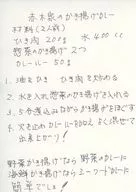 赤木家のかき揚げカレー
材料(2人前)
ひき肉 200g 水 400cc
惣菜のかき揚げ 2つ
カレールー 50g
1. 油をひき ひき肉を炒める
2. 水を入れ惣菜のかき揚げを入れる
3. 5分煮込みながらかき揚げをほぐす
4. 火を止めカレールーを加えよく混ぜて
出来上がり!
野菜かき揚げなら野菜カレーに
海鮮かき揚げならシーフードカレーに
簡単でしょ!